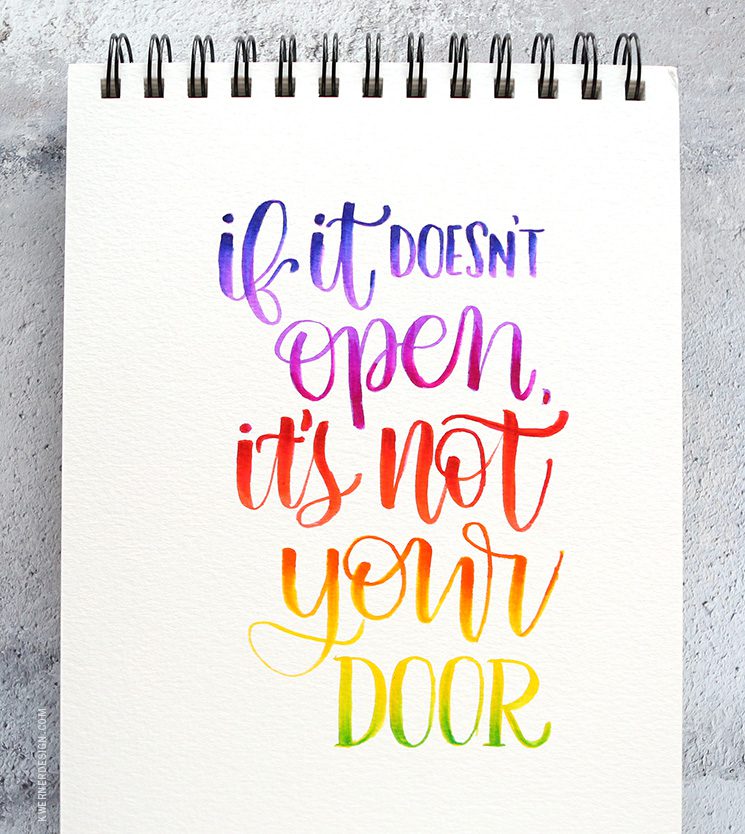 if it DOESN'T
open,
it's not
your
DOOR
KWERNERDESIGN.COM